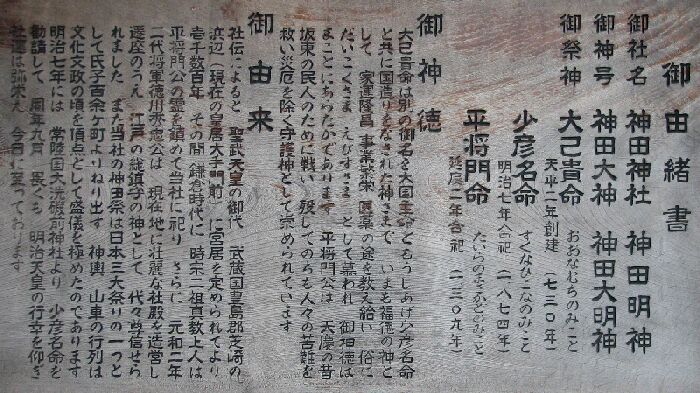 御由緒書
御社名 神田神社 神田明神
御神号 神田大神 神田大明神
御祭神 大己貴命 おおなむちのみこと
天平二年創建 (七三〇年)
少彦名命 すくなひこなのみこと
明治七年合祀 (一八七四年)
平将門命 たいらのまさかどのみこと
延慶二年合祀 (一三〇九年)
御神徳
大己貴命は別の御名を大国主命ともうしあげ少彦名命
と共に国造りをなされた神さまで、いまも福徳の神と
して、家運隆昌、事業繁栄、医薬の途を教え給い、俗に
だいこくさま、えびすさま、として慕われ、御神徳は
まことにあらたかであります。平将門公は、天慶の昔
坂東の民人のために戦い、歿してのちも人々の苦難を
救い災厄を除く守護神として崇められています。
御由来
社伝によると、聖武天皇の御代、武蔵国豊島郡芝崎の
浜辺(現在の皇居大手門前)に宮居を定められてより
壱千数百年、その間、鎌倉時代に、時宗二祖真教上人は
平将門公の霊を鎮めて当社に祀り、さらに、元和二年
二代将軍徳川秀忠公は、現在地に壮麗な社殿を造営し
遷座のうえ、江戸の総鎮守の神として、代々尊信せら
れました。また当社の神田祭は日本三大祭りの一つと
して氏子百余ヶ町よりねり出す、神輿、山車の行列は
文化文政の頃を頂点として盛儀を極めたのであります
明治七年には、常陸国大洗磯前神社より、少彦名命を
勧請して、同年九月、畏くも、明治天皇の行幸を仰ぎ
社運は弥栄え、今日に至っております。